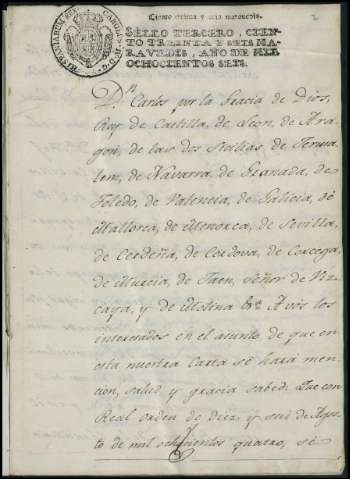 Ciento treinta y seis maravedis.
SELLO TERCERO, CIEN-
TO TREINTA Y SEIS MA-
RAVEDIS, AÑO DE MIL
OCHOCIENTOS SEIS.
HISPANIARUM REX CAROLUS IV D. G.
2
Dn. Carlos por la Gracia de Dios,
Rey de Castilla, de Leon, de Ara-
gon, de las dos Sicilias de Jerusa-
lem, de Navarra, de Granada, de
Toledo, de Valencia, de Galicia, de
Mallorca, de Menorca, de Sevilla,
de Cerdeña, de Cordova, de Corcega,
de Murcia, de Jaen, Señor de Viz-
caya, y de Molina &a. A vós los
interesados en el asunto de que en
esta nuestra Carta sé hará men-
ción, salud y gracia sabed: Que con
Real orden de diez y seis de Agos-
to de mil ochocientos quatro, sé